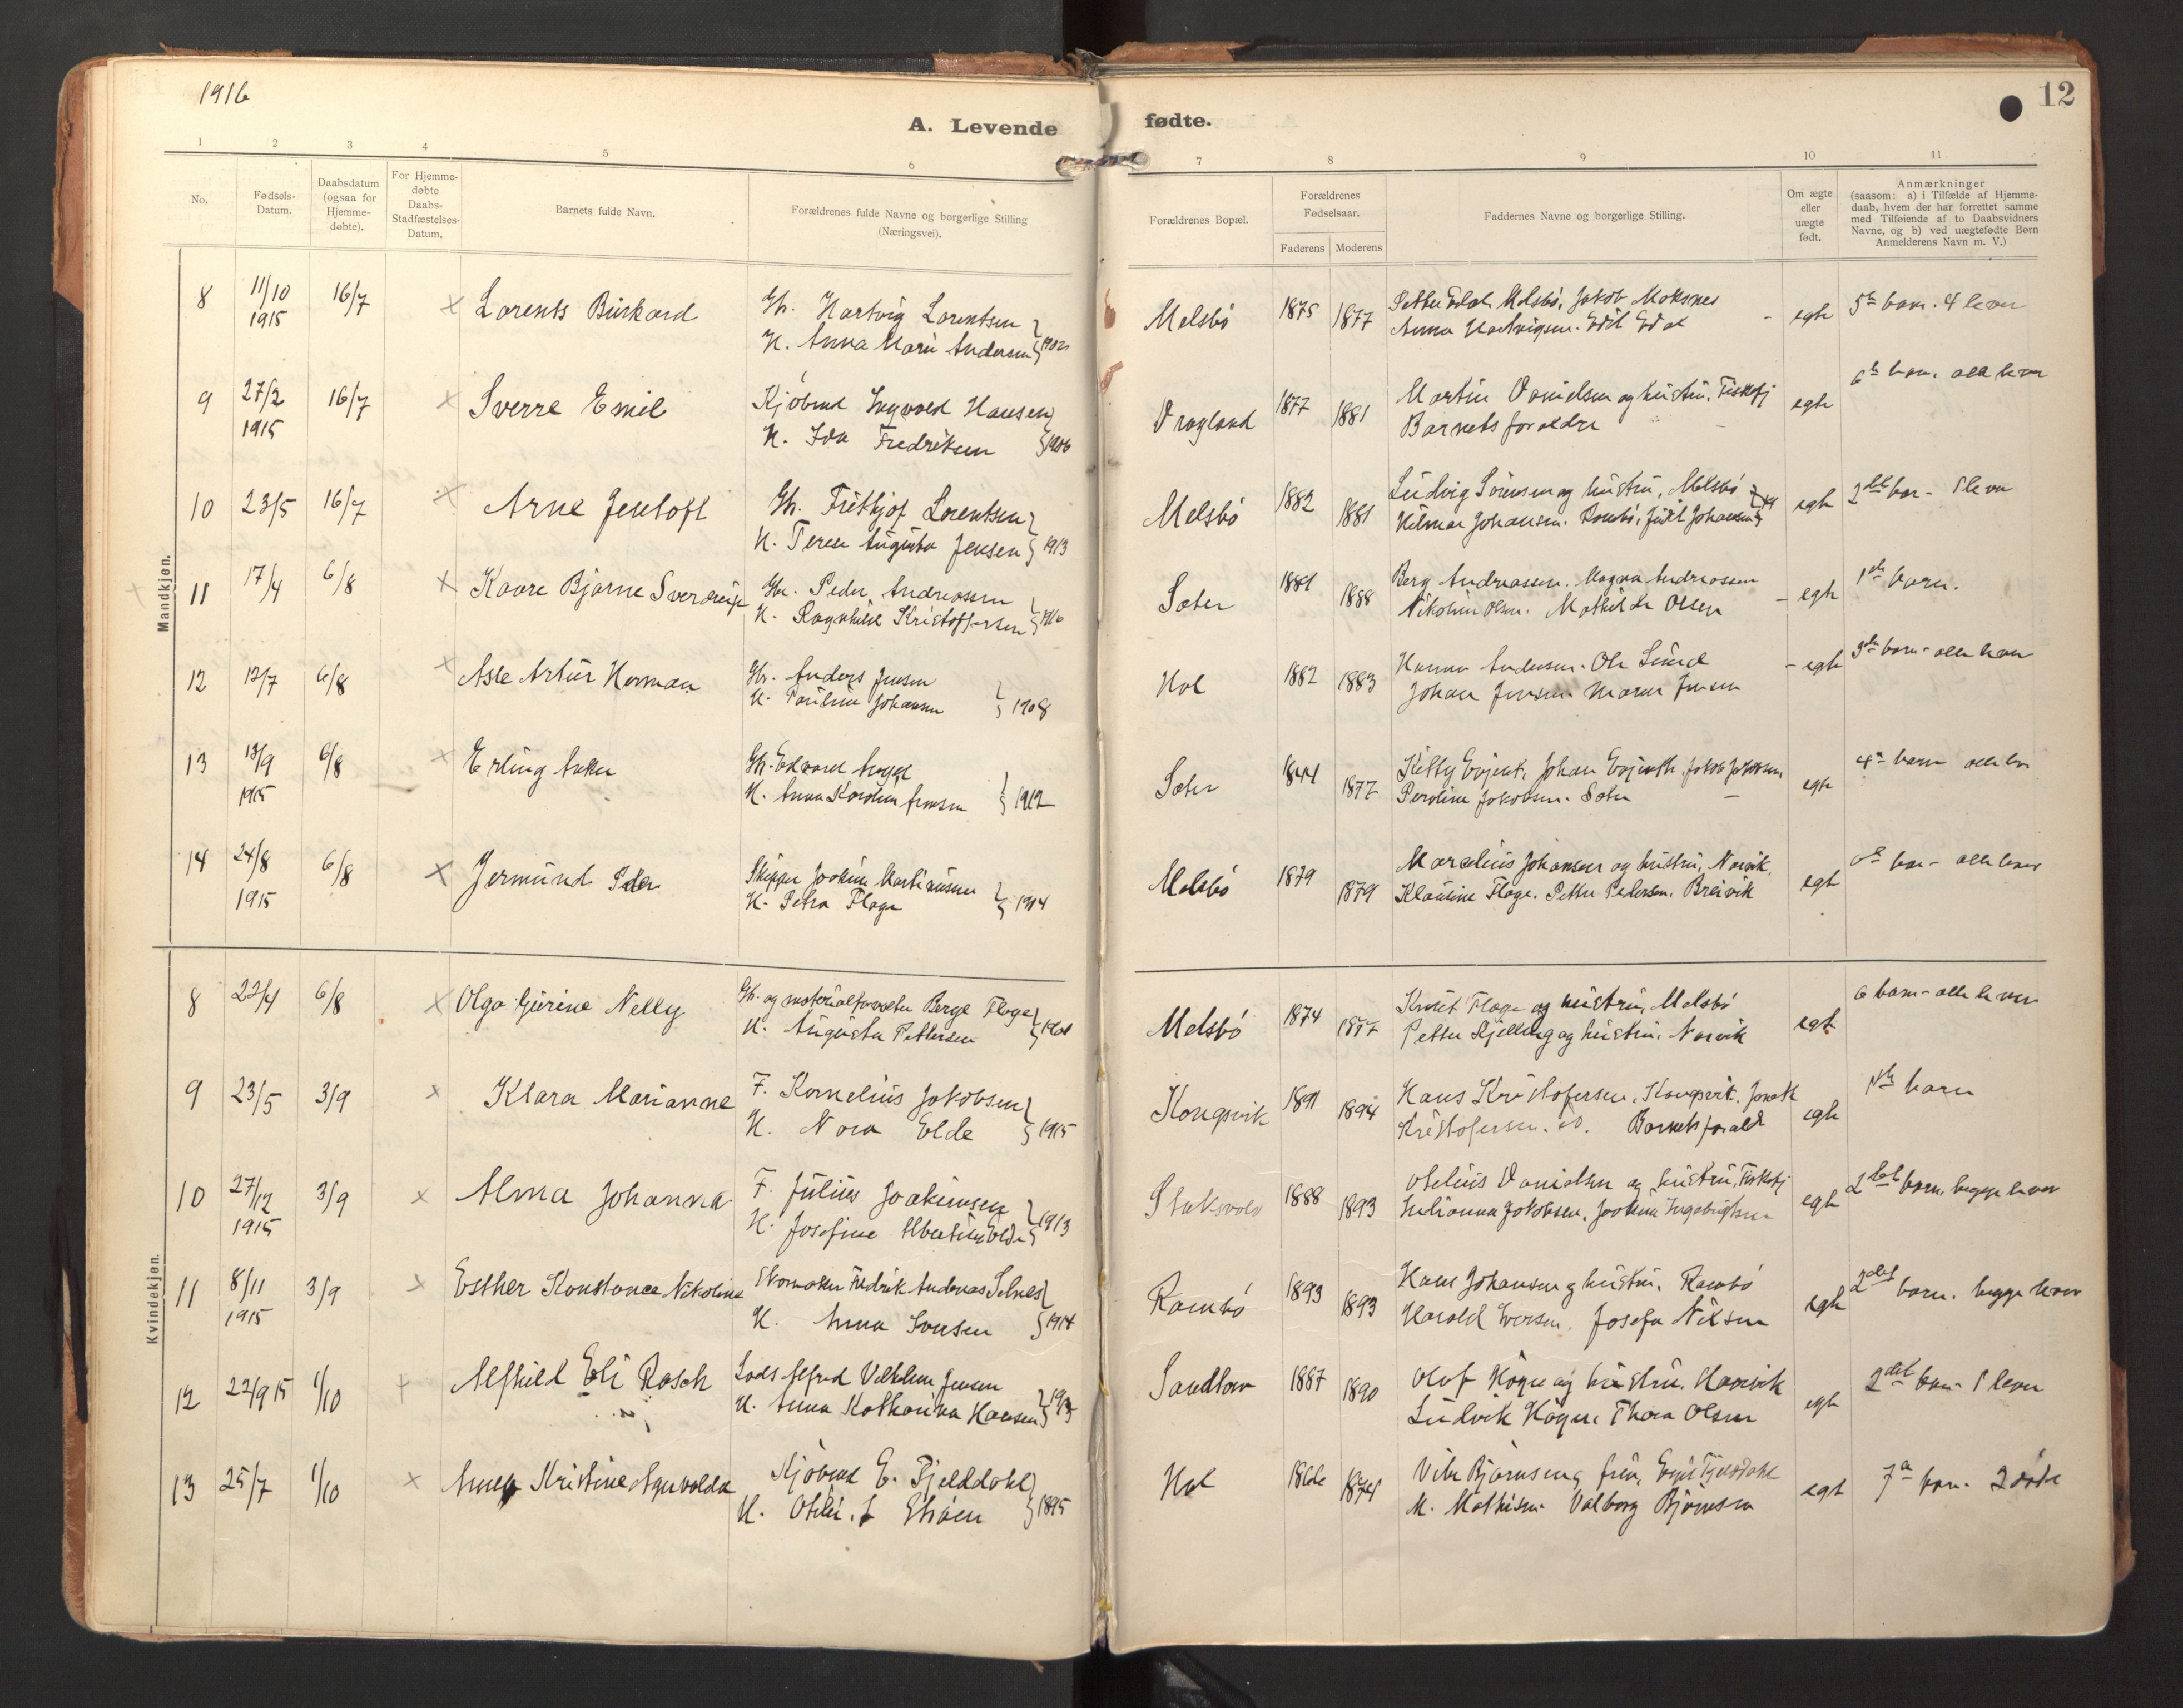 1916
12
A. Levende fødte.
1 2 3 4 5 6 7 8 9 10 11
No.
Fødsels-Datum.
Daabsdatum (ogsaa for Hjemme-døbte).
For Hjemme-døbte Daabs-Stadfæstelses-Datum.
Barnets fulde Navn.
Forældrenes fulde Navne og borgerlige Stilling (Næringsvei).
Forældrenes Bopæl.
Forældrenes Fødselsaar.
Faderens Moderens
Faddernes Navne og borgerlige Stilling.
Om ægte eller uægte født.
Anmærkninger (saasom: a) i Tilfælde af Hjemme-daab, hvem der har forrettet samme med Tilføiende af to Daabsvidners Navne, og b) ved uægtefødte Børn Anmelderens Navn m. V.)
Mandkjøn.
8 11/10 1915 16/7 Lorents Birkard
Gb. Hartvig Lorentsen
H. Anna Marie Andersen
Melsbö 1875 1877
Petter Edal Melsbö, Jakob Moksnes
Anna Hartvigsen. Edit Edal
egte 5te barn. 4 lever
9 27/2 1915 16/7 Sverre Emil
Kjöbmd Ingvald Hansen
H. Ida Fredriksen 1906
Dragland 1877 1881
Martin Danielsen og hustru, Fiskefj
Barnets foreldre
egte 6te barn. alle lever
10 23/5 16/7 Arne Jentoft
Gb. Frithjof Lorentsen
H. Terese Augusta Jensen 1913
Melsbö 1882 1881
Ludvig Sörensen og hustru, Melsbö
Hilmar Johansen. Rambö, Judit Johansen
egte 2det bar- 1 lever
11 17/4 6/8 Kaare Bjarne Sverdrup
Gbr. Peder Andreassen
H. Ragnhild Kristoffersen 1916
Sæter 1881 1888
Berg Andreassen. Magna Andreassen
Nikoline Olsen. Mathilde Olsen
egte 1ste barn.
12 12/7 6/8 Asle Artur Herman
Gbr. Anders Jensen
H. Pauline Johansen 1908
Hol 1882 1883
Hanna Andersen. Ole Lund
Johan Jensen Maren Jensen
egte 3die barn - alle lever
13 13/9 1915 6/8 Erling Asker
Gb. Edvard
H. Anna Karoline Jensen 1912
Sæter 1844 1877
Johan Evjenth, Jakob Jakobsen
Peroline Jakobsen. Sæter
egte 4de barn alle lever
14 24/8 1915 6/8 Jermund Peder
Skipper Joakim Martinussen
H. Petra Flage 1914
Melsbö 1879 1879
Marelius Johansen og hustru, Narvik.
Klaudine Flage. Petter Pedersen. Breivik
egte barn - alle lever
Kvindekjøn.
8 22/4 6/8 Olga Gurine Nelly
Gb. og materialforvalter Berge Flage
H. Augusta Pettersen 1901
Melsbö 1874 1877
Knut Flage og hustru, Melsbö
Petter Kjelling og hustru. Narvik
egte 6 barn - alle lever
9 23/5 3/9 Klara Marianne
F. Kornelius Jakobsen
H. Nora Elde 1915
Kongsvik 1891 1894
Hans Kristofersen, Kongsvik.
Kristofersen. Barnets foreld
egte 1ste barn
10 27/12 1915 3/9 Alma Johanna
F. Julius Joakimsen
H. Josefine Albertine Elde 1913
1888 1893
Otelius Danielsen og hustru, Fiskefj
Julianna Jakobsen, Joakim Ingebrigtsen
egte 2det barn. begge lever
11 8/11 1915 3/9 Esther Konstance Nikoline
Skomaker Fredrik Andreas Selnes
H. Anna Iversen 1914
Rambö 1893 1893
Hans Johansen og hustru. Rambö
Harald Iversen. Josefa Nilsen
egte 2det barn. begge lever
12 22/9 15 1/10 Alfhild Eli Rasch
Lods Alfred Vilhelm Jensen
H. Anna Katharina Hansen 1913
Sandtorv 1887 1890
Olof Högne og hustru. Haarvik
Ludvik Högne, Thora Olsen
egte 2det barn 1 lever
13 25/7 1/10 Anna Kristine Agnvalda
Kjöbmd E. Fjelldahl
H. Otelie. J. Ellisen 1895
Hol 1874
Vibe Björnsen og frue, Fjelddahl
M. Mathisen Valborg Björnsen
egte 7de barn. 2 döde